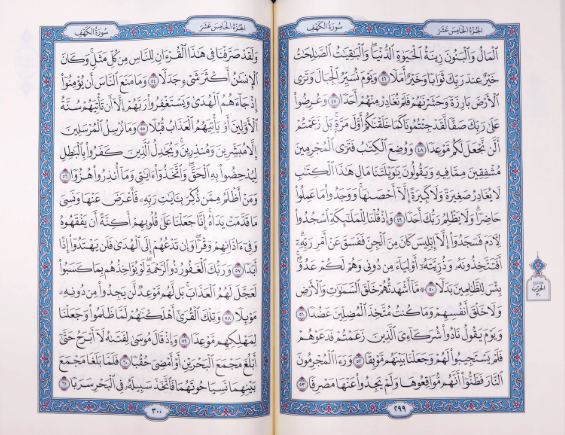 الجُزْءُ الخَامِسَ عَشَرَ
سُورَةُ الكَهْفِ
ٱلْمَالُ وَٱلْبَنُونَ زِينَةُ ٱلْحَيَوٰةِ ٱلدُّنْيَاۖ وَٱلْبَٰقِيَٰتُ ٱلصَّٰلِحَٰتُ
خَيْرٌ عِندَ رَبِّكَ ثَوَابًا وَخَيْرٌ أَمَلًا ٤٦ وَيَوْمَ نُسَيِّرُ ٱلْجِبَالَ وَتَرَى
ٱلْأَرْضَ بَارِزَةً وَحَشَرْنَٰهُمْ فَلَمْ نُغَادِرْ مِنْهُمْ أَحَدًا ٤٧ وَعُرِضُوا۟
عَلَىٰ رَبِّكَ صَفًّا لَّقَدْ جِئْتُمُونَا كَمَا خَلَقْنَٰكُمْ أَوَّلَ مَرَّةٍۭۚ بَلْ زَعَمْتُمْ
أَلَّن نَّجْعَلَ لَكُم مَّوْعِدًا ٤٨ وَوُضِعَ ٱلْكِتَٰبُ فَتَرَى ٱلْمُجْرِمِينَ
مُشْفِقِينَ مِمَّا فِيهِ وَيَقُولُونَ يَٰوَيْلَتَنَا مَالِ هَٰذَا ٱلْكِتَٰبِ
لَا يُغَادِرُ صَغِيرَةً وَلَا كَبِيرَةً إِلَّآ أَحْصَىٰهَاۚ وَوَجَدُوا۟ مَا عَمِلُوا۟
حَاضِرًاۗ وَلَا يَظْلِمُ رَبُّكَ أَحَدًا ٤٩ وَإِذْ قُلْنَا لِلْمَلَٰٓئِكَةِ ٱسْجُدُوا۟
لِءَادَمَ فَسَجَدُوٓا۟ إِلَّآ إِبْلِيسَ كَانَ مِنَ ٱلْجِنِّ فَفَسَقَ عَنْ أَمْرِ رَبِّهِۦٓۗ
أَفَتَتَّخِذُونَهُۥ وَذُرِّيَّتَهُۥٓ أَوْلِيَآءَ مِن دُونِي وَهُمْ لَكُمْ عَدُوٌّۢۚ
بِئْسَ لِلظَّٰلِمِينَ بَدَلًا ٥٠ مَّآ أَشْهَدتُّهُمْ خَلْقَ ٱلسَّمَٰوَٰتِ وَٱلْأَرْضِ
وَلَا خَلْقَ أَنفُسِهِمْ وَمَا كُنتُ مُتَّخِذَ ٱلْمُضِلِّينَ عَضُدًا ٥١
وَيَوْمَ يَقُولُ نَادُوا۟ شُرَكَآءِيَ ٱلَّذِينَ زَعَمْتُمْ فَدَعَوْهُمْ
فَلَمْ يَسْتَجِيبُوا۟ لَهُمْ وَجَعَلْنَا بَيْنَهُم مَّوْبِقًا ٥٢ وَرَءَا ٱلْمُجْرِمُونَ
ٱلنَّارَ فَظَنُّوٓا۟ أَنَّهُم مُّوَاقِعُوهَا وَلَمْ يَجِدُوا۟ عَنْهَا مَصْرِفًا ٥٣
٢٩٩
الجُزْءُ الخَامِسَ عَشَرَ
سُورَةُ الكَهْفِ
وَلَقَدْ صَرَّفْنَا فِي هَٰذَا ٱلْقُرْءَانِ لِلنَّاسِ مِن كُلِّ مَثَلٍۚ وَكَانَ
ٱلْإِنسَٰنُ أَكْثَرَ شَيْءٍ جَدَلًا ٥٤ وَمَا مَنَعَ ٱلنَّاسَ أَن يُؤْمِنُوٓا۟
إِذْ جَآءَهُمُ ٱلْهُدَىٰ وَيَسْتَغْفِرُوا۟ رَبَّهُمْ إِلَّآ أَن تَأْتِيَهُمْ سُنَّةُ
ٱلْأَوَّلِينَ أَوْ يَأْتِيَهُمُ ٱلْعَذَابُ قُبُلًا ٥٥ وَمَا نُرْسِلُ ٱلْمُرْسَلِينَ
إِلَّا مُبَشِّرِينَ وَمُنذِرِينَۚ وَيُجَٰدِلُ ٱلَّذِينَ كَفَرُوا۟ بِٱلْبَٰطِلِ
لِيُدْحِضُوا۟ بِهِ ٱلْحَقَّۖ وَٱتَّخَذُوٓا۟ ءَايَٰتِي وَمَآ أُنذِرُوا۟ هُزُوًا ٥٦
وَمَنْ أَظْلَمُ مِمَّن ذُكِّرَ بِـَٔايَٰتِ رَبِّهِۦ فَأَعْرَضَ عَنْهَا وَنَسِيَ
مَا قَدَّمَتْ يَدَاهُۚ إِنَّا جَعَلْنَا عَلَىٰ قُلُوبِهِمْ أَكِنَّةً أَن يَفْقَهُوهُ
وَفِيٓ ءَاذَانِهِمْ وَقْرًاۖ وَإِن تَدْعُهُمْ إِلَى ٱلْهُدَىٰ فَلَن يَهْتَدُوٓا۟ إِذًا
أَبَدًا ٥٧ وَرَبُّكَ ٱلْغَفُورُ ذُو ٱلرَّحْمَةِۖ لَوْ يُؤَاخِذُهُم بِمَا كَسَبُوا۟
لَعَجَّلَ لَهُمُ ٱلْعَذَابَۚ بَل لَّهُم مَّوْعِدٌ لَّن يَجِدُوا۟ مِن دُونِهِۦ
مَوْئِلًا ٥٨ وَتِلْكَ ٱلْقُرَىٰٓ أَهْلَكْنَٰهُمْ لَمَّا ظَلَمُوا۟ وَجَعَلْنَا
لِمَهْلِكِهِم مَّوْعِدًا ٥٩ وَإِذْ قَالَ مُوسَىٰ لِفَتَىٰهُ لَآ أَبْرَحُ حَتَّىٰٓ
أَبْلُغَ مَجْمَعَ ٱلْبَحْرَيْنِ أَوْ أَمْضِيَ حُقُبًا ٦٠ فَلَمَّا بَلَغَا مَجْمَعَ
بَيْنِهِمَا نَسِيَا حُوتَهُمَا فَٱتَّخَذَ سَبِيلَهُۥ فِي ٱلْبَحْرِ سَرَبًا ٦١
٣٠٠